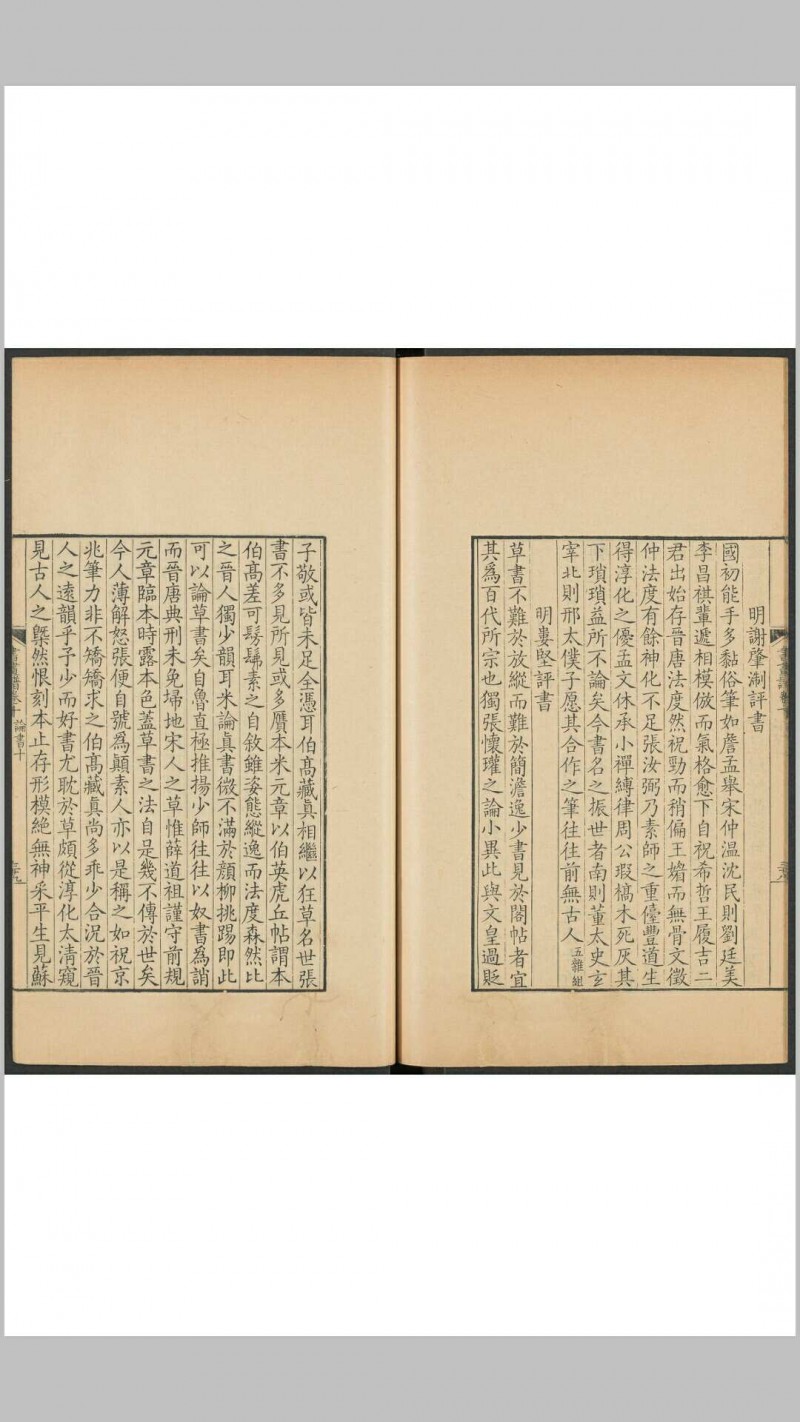 明謝肇淛評書
國初能手多黏俗筆如詹孟舉宋仲溫沈民則劉廷美
李昌祺輩遞相模倣而氣格愈下自祝希哲王履吉二
君出始存晉唐法度然祝勁而稍偏王媚而無骨文徵
仲法度有餘神化不足張汝弼乃素師之重儓豐道生
得淳化之優孟文休承小禪縛律周公瑕槁木死灰其
下瑣瑣益所不論矣今書名之振世者南則董太史玄
宰北則邢太僕子愿其合作之筆往往前無古人五雜組
明婁堅評書
草書不難於放縱而難於簡澹逸少書見於閣帖者宜
其為百代所宗也獨張懷瓘之論小異此與文皇過貶
子敬或皆未足全憑耳伯高藏真相繼以狂草名世張
書不多見所見或多贋本米元章以伯英虎丘帖謂本
伯高差可髣髴素之自敘雖姿態縱逸而法度森然比
之晉人獨少韻耳米論真書微不滿於顏柳挑踢即此
可以論草書矣自魯直極推揚少師往往以奴書為誚
而晉唐典刑未免埽地宋人之草惟薛道祖謹守前規
元章臨本時露本色蓋草書之法自是幾不傳於世矣
今人薄解怒張便自號為顛素人亦以是稱之如祝京
兆筆力非不矯矯求之伯高藏真尚多乖少合況於晉
人之遠韻乎予少而好書尤耽於草頗從淳化太清窺
見古人之槩然恨刻本止存形模絕無神采平生見蘇
論書十